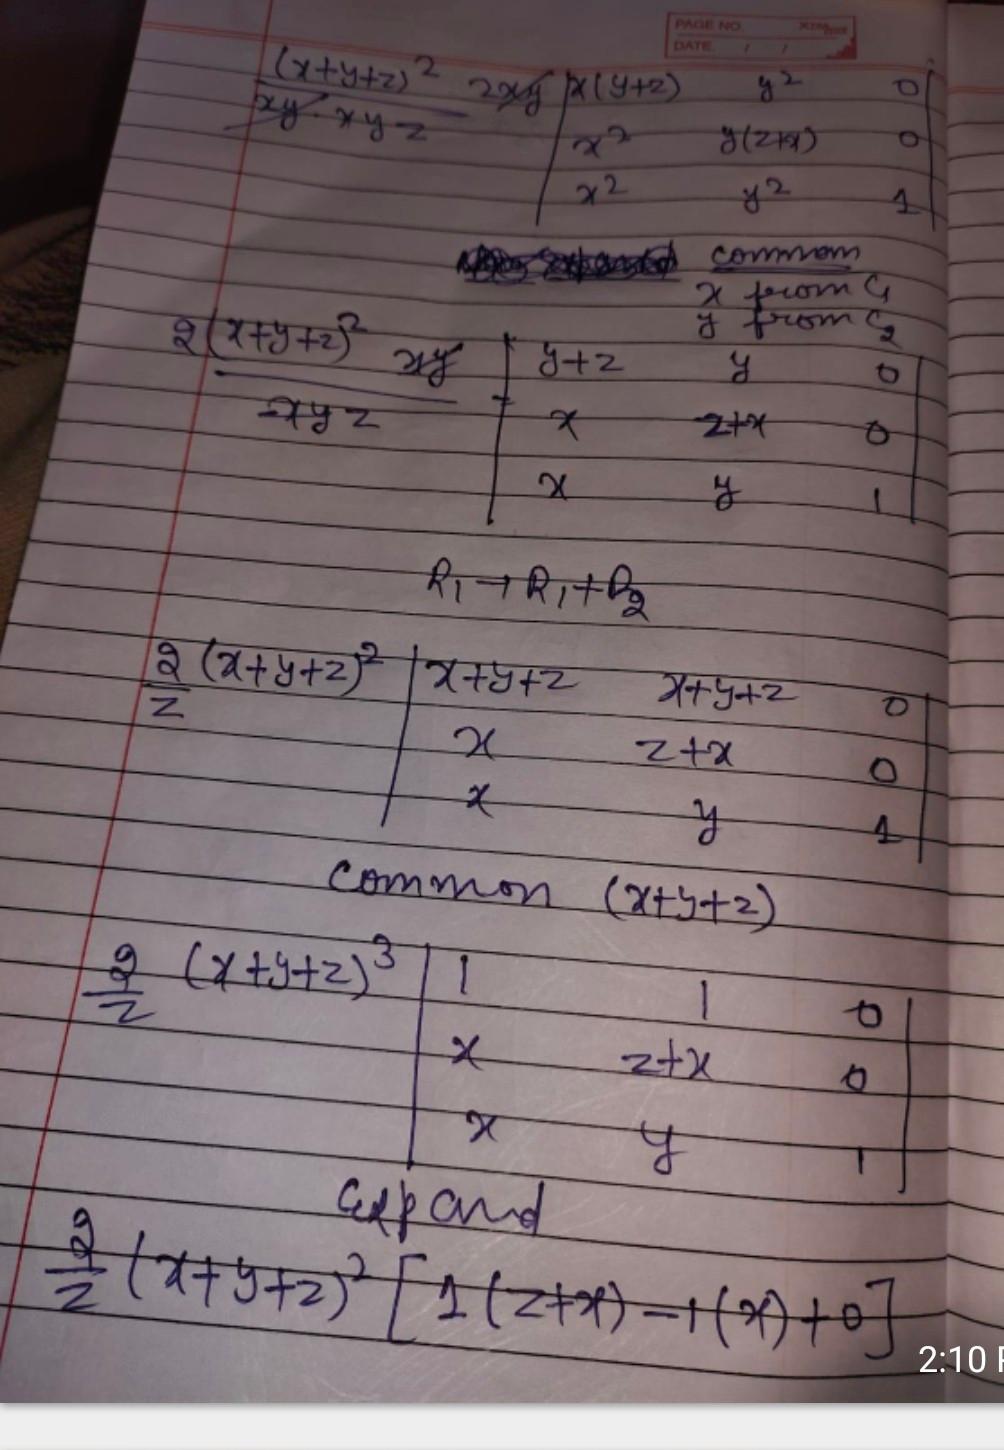 PAGE NO.
DATE / /
(x+y+z)² 2xy | x(y+z) y² 0 |
xy. xyz | x² y(z+x) 0 |
| x² y² 1 |
common
x from C1
y from C2
2(x+y+z)² xy | y+z y 0 |
xyz | x z+x 0 |
| x y 1 |
R1 → R1+R2
2 (x+y+z)² | x+y+z x+y+z 0 |
z | x z+x 0 |
| x y 1 |
common (x+y+z)
2 (x+y+z)³ | 1 1 0 |
z | x z+x 0 |
| x y 1 |
expand
2/z (x+y+z)² [1(z+x) -1(x)+0]
2:10